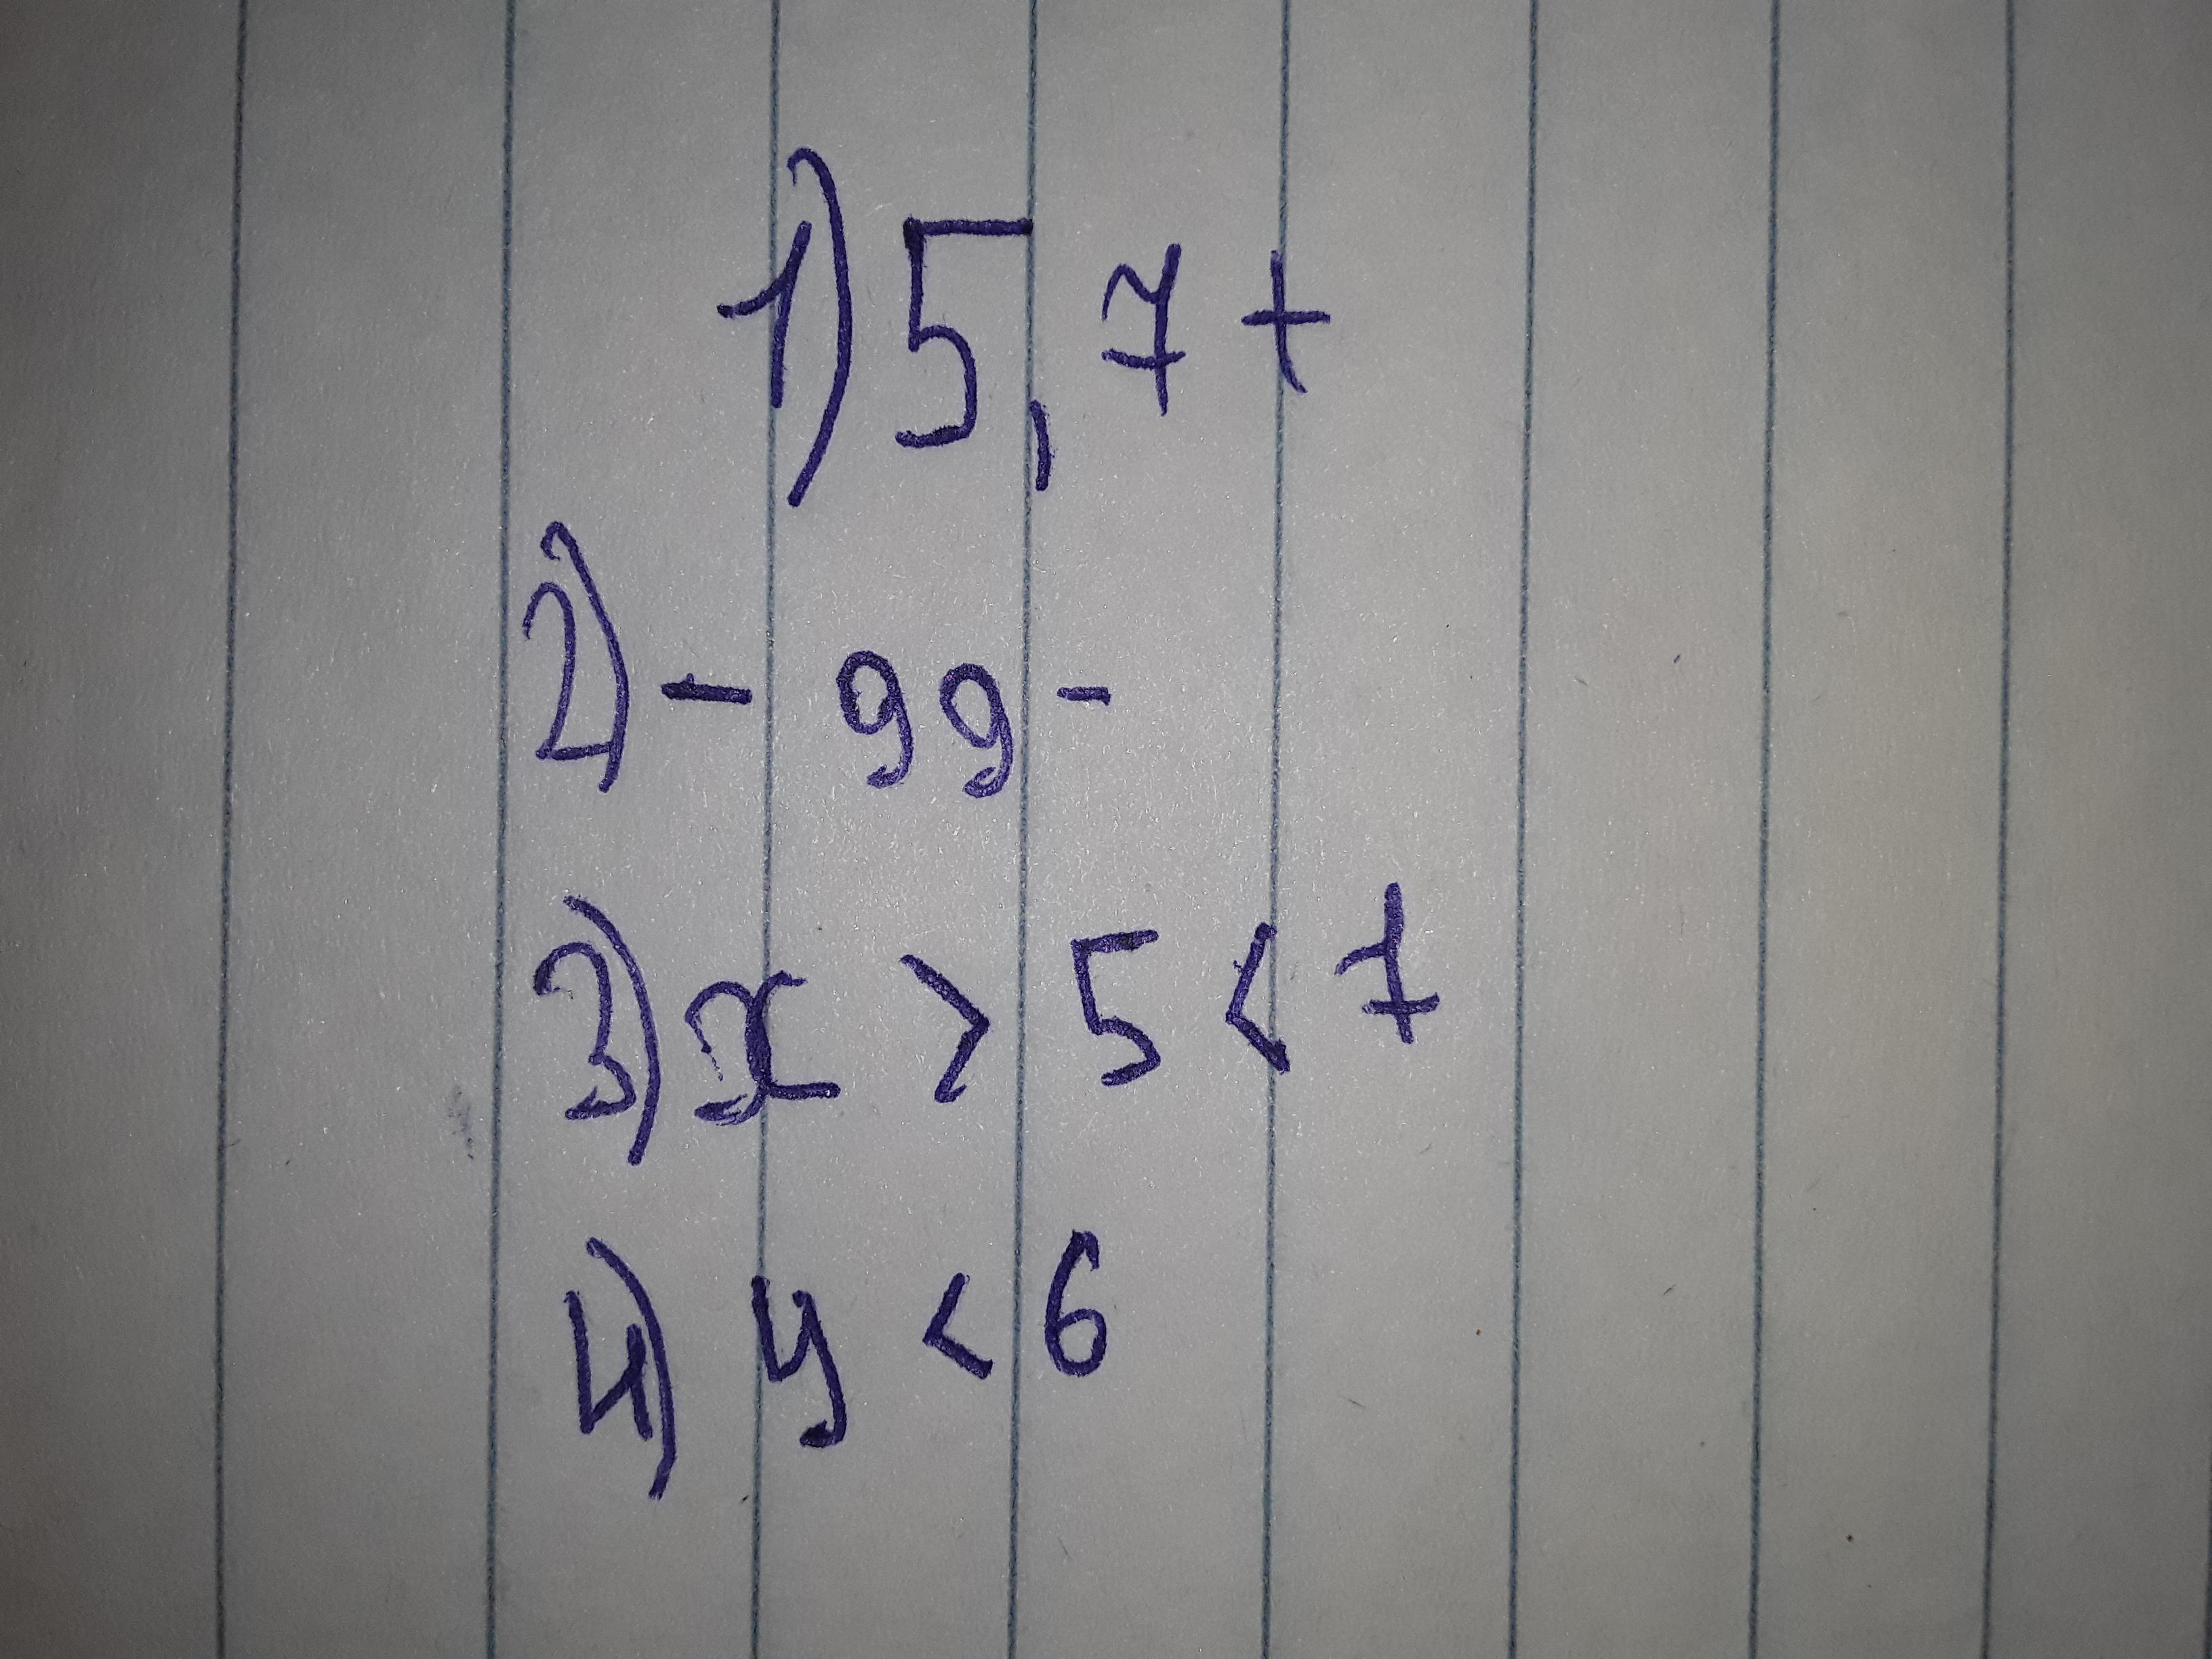 1) 5, 7 +
2) - 99 -
3) x > 5 < 7
4) y < 6